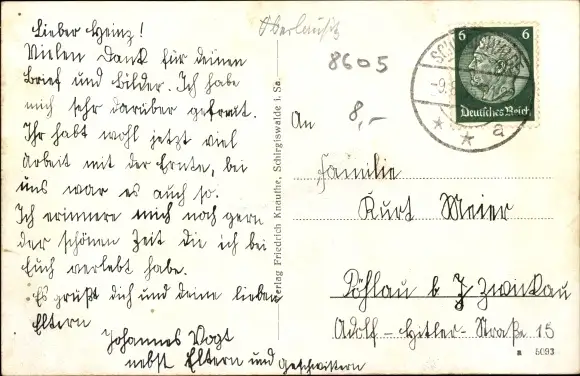 Lieber Heinz!
Vielen Dank für deinen
Brief und Bilder. Ich habe
mich sehr darüber gefreut.
Ihr habt wohl jetzt viel
Arbeit mit der Ernte, bei
uns war es auch so.
Ich erinnere mich noch gern
der schönen Zeit die ich bei
Euch verlebt habe.
Es grüßt dich und deine lieben
Eltern
Johannes Vogt
nebst Eltern und Geschwistern
Oberlausitz
8605
8,-
Verlag Friedrich Knauthe, Schirgiswalde i. Sa.
6 6
Deutsches Reich
* * a
An
Familie
Kurt Meier
Pöhlau b Zwickau
Adolf-Hitler-Straße 15
5093